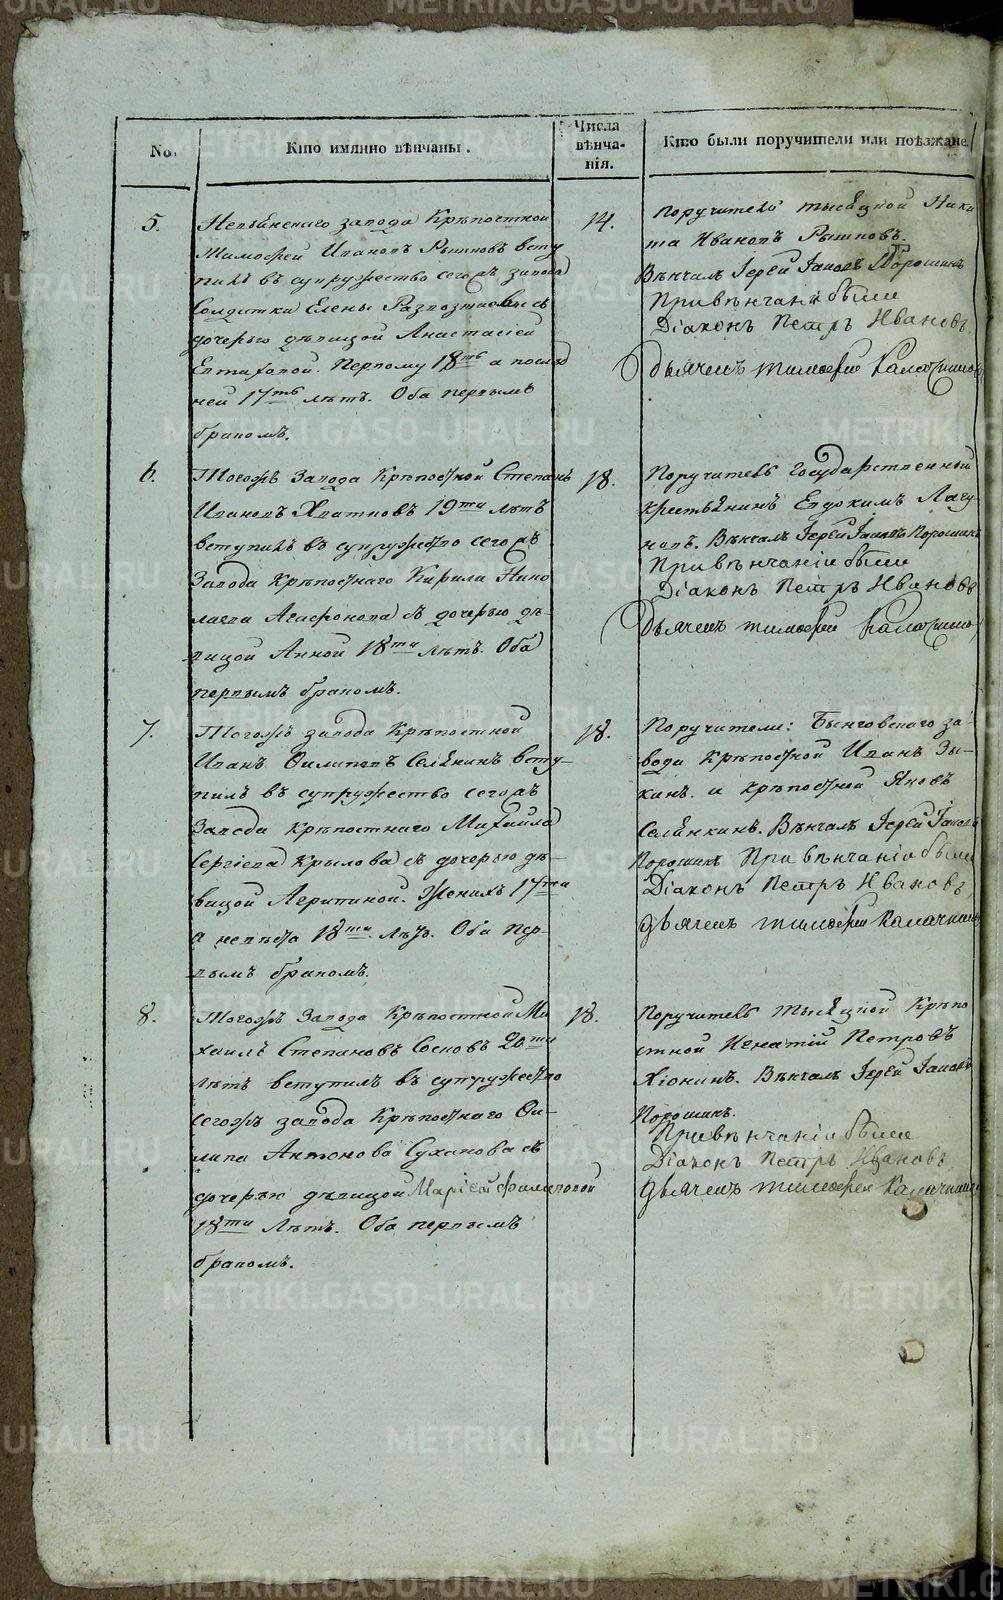 No.
Кто имянно вѣнчаны.
Числа
вѣнча-
нія.
Кто были поручители или поѣзжане.
5.
Невьянскаго завода Крѣпостной
Тимофей Ивановъ Рытновъ всту
пилъ въ супружество сегожъ завода
Солдатки Елены съ
дочерью дѣвицой Анастасіей
Первому 18ть а послѣд
ней 17ть лѣтъ. Оба первымъ
бракомъ.
14.
Поручители тысяцкой Ники
та Ивановъ Рытновъ.
Вѣнчалъ Іерей Іаковъ Порошинъ
При вѣнчаніи были
Діаконъ Петръ Ивановъ
Дьячекъ Тимофей
6.
Тогожъ Завода Крѣпостной Степанъ
Ивановъ 19ти лѣтъ
вступилъ въ супружество сегожъ
Завода Крѣпостнаго Кирила Нико
лаева Агафонова съ дочерью дѣ-
вицой Анной 18ти лѣтъ. Оба
первымъ бракомъ.
18.
Поручитель Государственный
крестьянинъ Евдокимъ Лагу-
новъ. Вѣнчалъ Іерей Іаковъ Порошинъ
При вѣнчаніи были
Діаконъ Петръ Ивановъ
Дьячекъ Тимофей
7.
Тогожъ завода Крѣпостной
Иванъ Филиповъ Селянкинъ всту-
пилъ въ супружество сегожъ
Завода Крѣпостнаго Михаила
Сергіева Крылова съ дочерью дѣ-
вицой Агрипиной. Женихъ 17ти
а невѣста 18ти лѣтъ. Оба Пер-
вымъ бракомъ.
18.
Поручители: Быньговскаго за-
вода Крѣпостной Иванъ Зы-
кинъ. и крѣпостной Яковъ
Селянкинъ. Вѣнчалъ Іерей Іаковъ
Порошинъ При вѣнчаніи были
Діаконъ Петръ Ивановъ
Дьячекъ Тимофей
8.
Тогожъ Завода Крѣпостной Ми
хаилъ Степановъ Сосновъ 20ти
лѣтъ вступилъ въ супружество
сегожъ завода Крѣпостнаго Фи-
липа Антонова Суханова съ
дочерью дѣвицой Маріей Филиповой
18ти Лѣтъ. Оба первымъ
бракомъ.
18.
Поручитель тысяцкой Крѣпо
стной Игнатій Петровъ
Хіонинъ. Вѣнчалъ Іерей Іаковъ
Порошинъ.
При вѣнчаніи были
Діаконъ Петръ Ивановъ
Дьячекъ Тимофей
METRIKI.GASO-URAL.RU